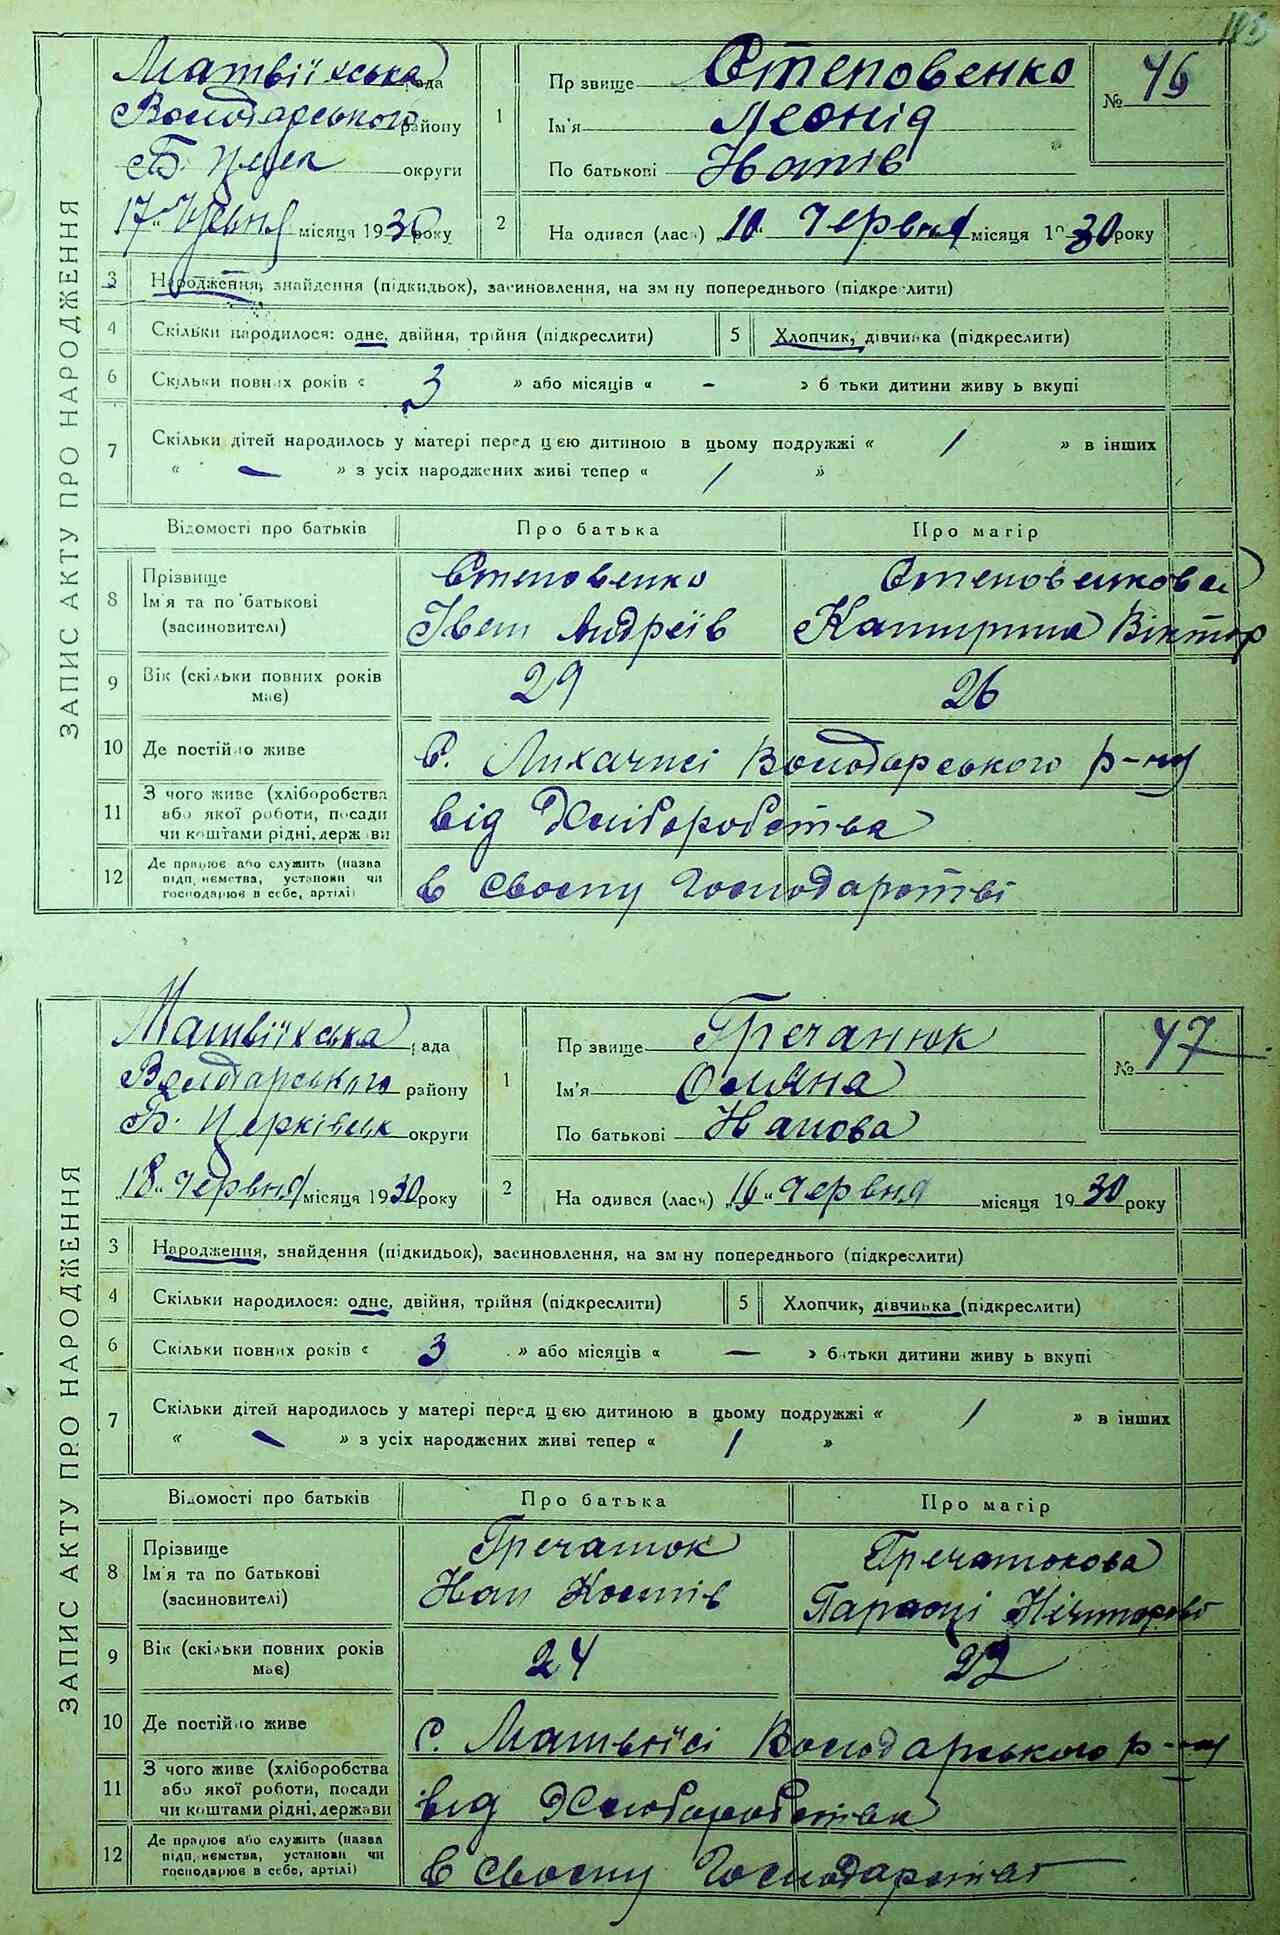 ЗАПИС АКТУ ПРО НАРОДЖЕННЯ
Матвіїхська рада
Володарського району
Б. Церк округи
17 червня місяця 1930 року
1
Прізвище Степовенко
Ім'я Леонід
По батькові
№ 46
2
На одився (лась) 10 Червня місяця 1930 року
3 Народження, знайдення (підкидьок), засиновлення, на зміну попереднього (підкреслити)
4 Скільки народилося: одне, двійня, трійня (підкреслити) 5 Хлопчик, дівчинка (підкреслити)
6 Скільки повних років « 3 » або місяців « – » батьки дитини живуть вкупі
7 Скільки дітей народилось у матері перед цією дитиною в цьому подружжі « 1 » в інших
« – » з усіх народжених живі тепер « 1 »
Відомості про батьків Про батька Про матір
8 Прізвище
Ім'я та по батькові
(засиновителі)
Степовенко
Іван Андреїв
Степовенкова
Катирина Віктор
9 Вік (скільки повних років має) 29 26
10 Де постійно живе с. Лихачисі Володарського р-ну
11 З чого живе (хліборобства
або якої роботи, посади
чи коштами рідні, держави
від Хліборобства
12 Де працює або служить (назва
підприємства, установи чи
господарює в себе, артілі)
в своєму Господарстві
ЗАПИС АКТУ ПРО НАРОДЖЕННЯ
Матвіїхська рада
Володарського району
Б. Церківськ округи
18 червня місяця 1930 року
1
Прізвище Гречанюк
Ім'я Оляна
По батькові
№ 47
2
На одився (лась) 16 червня місяця 1930 року
3 Народження, знайдення (підкидьок), засиновлення, на зміну попереднього (підкреслити)
4 Скільки народилося: одне, двійня, трійня (підкреслити) 5 Хлопчик, дівчинка (підкреслити)
6 Скільки повних років « 3 » або місяців « — » батьки дитини живуть вкупі
7 Скільки дітей народилось у матері перед цією дитиною в цьому подружжі « 1 » в інших
« – » з усіх народжених живі тепер « 1 »
Відомості про батьків Про батька Про матір
8 Прізвище
Ім'я та по батькові
(засиновителі)
Гречанюк
Костів
Гречанюкова
9 Вік (скільки повних років має) 24 22
10 Де постійно живе с. Матвіїсі Володарського р-ну
11 З чого живе (хліборобства
або якої роботи, посади
чи коштами рідні, держави
від Хліборобства
12 Де працює або служить (назва
підприємства, установи чи
господарює в себе, артілі)
в своєму Господарстві